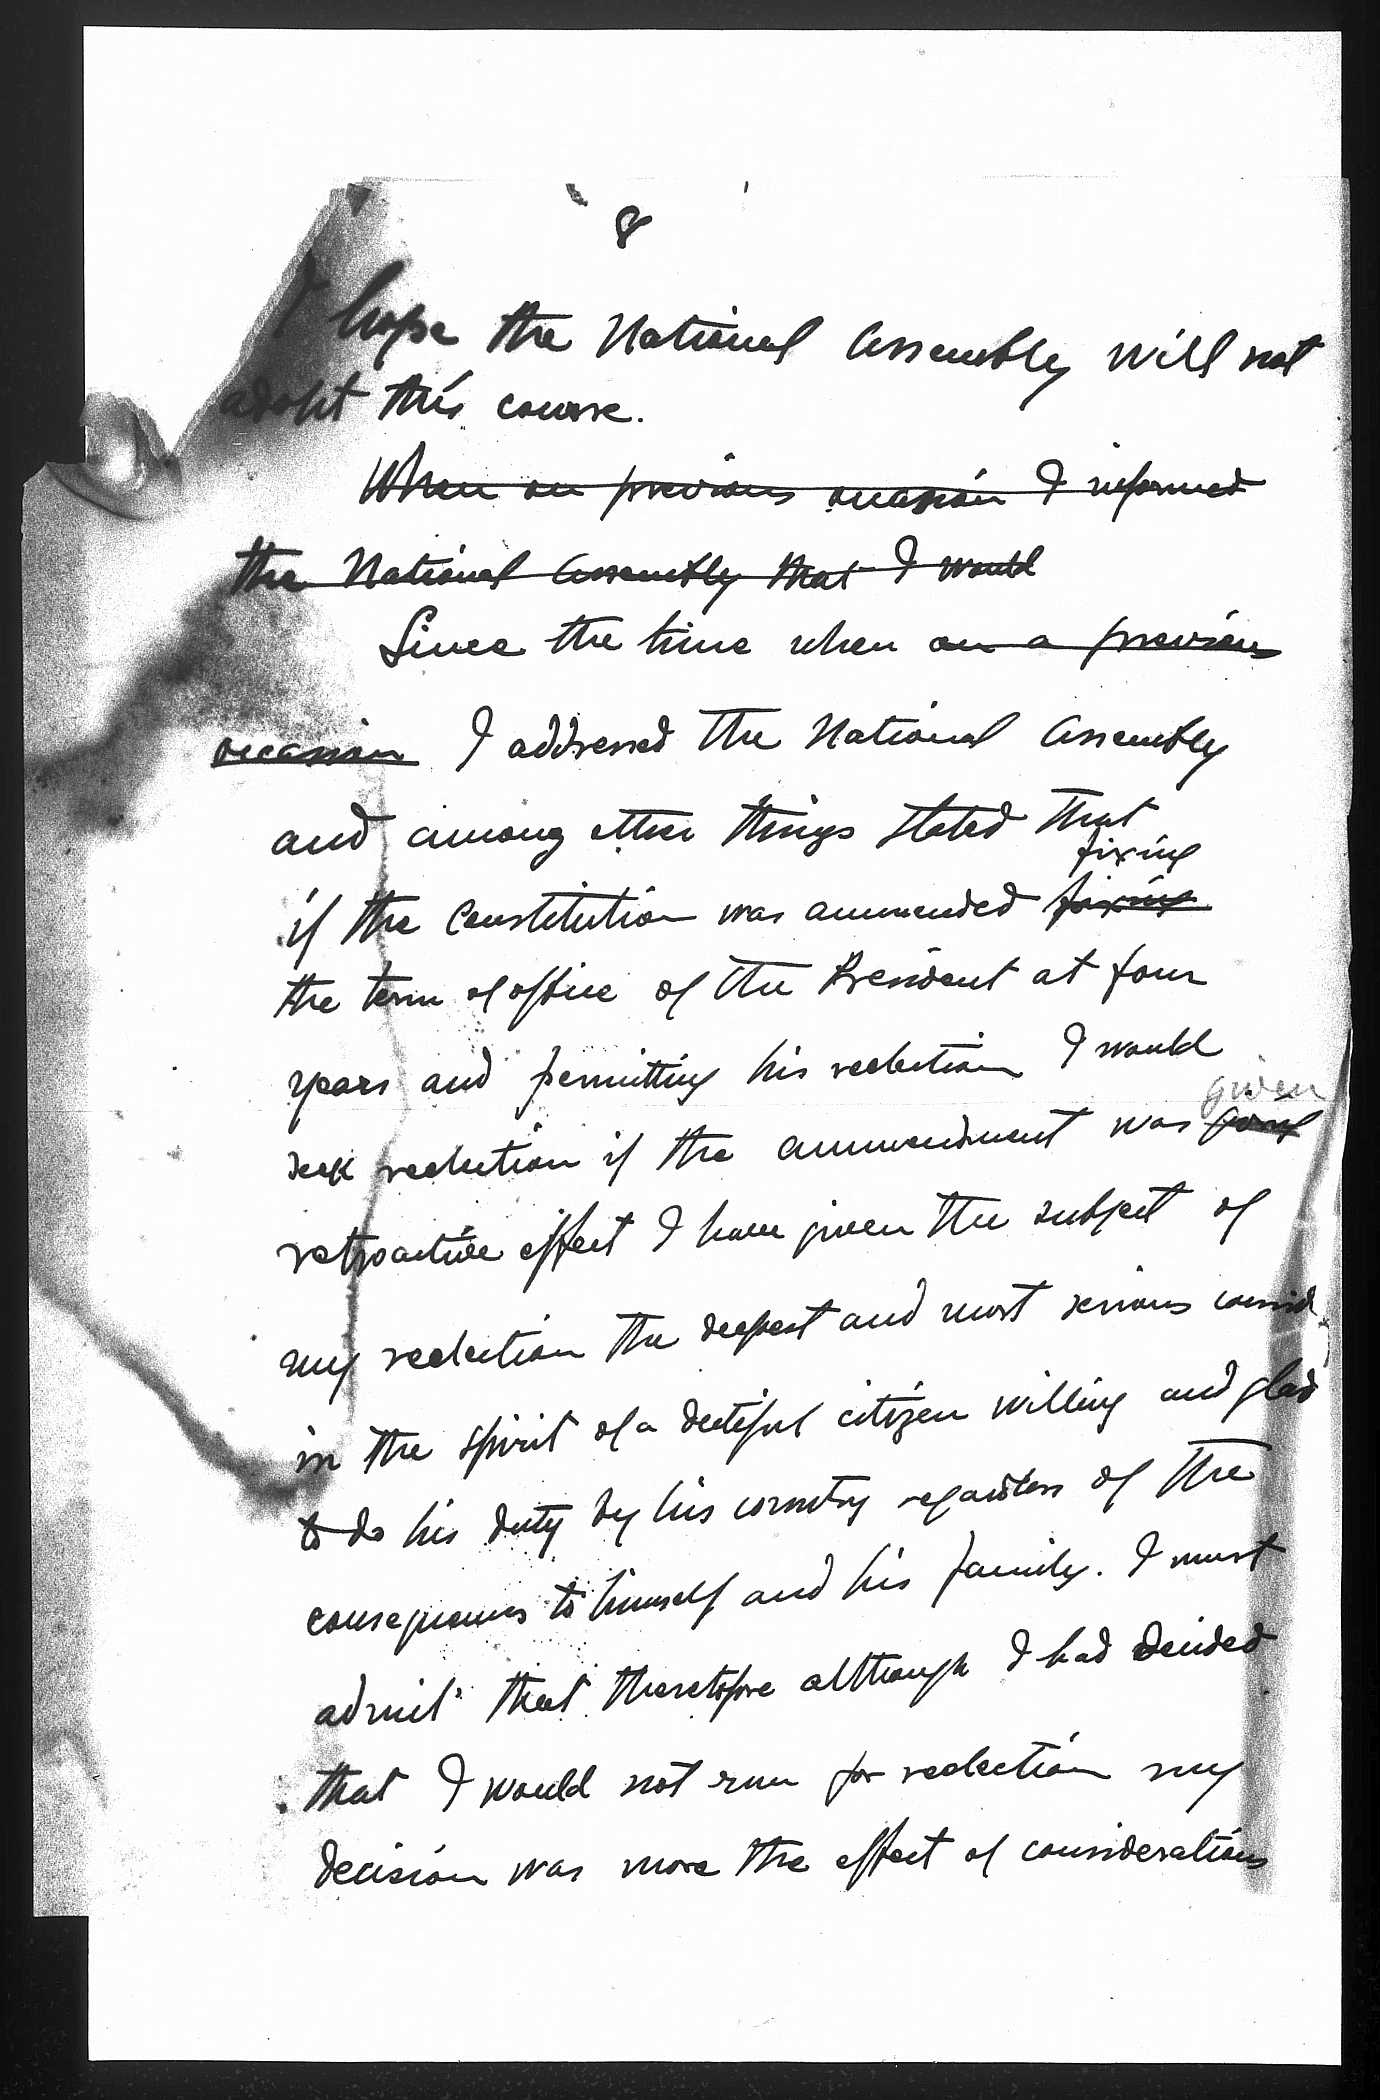 8
I hope the National Assembly will not
adopt this course.
When on previous occasion I informed
the National Assembly that I would
Since the time when on a previous
occasion I addressed the National Assembly
and among other things stated that
fixing
if the Constitution was ammended fixing
the term of office of the President at four
years and permitting his reelection I would
given
seek reelection if the ammendment was
retroactive effect I have given the subject of
my reelection the deepest and most serious consid
in the spirit of a dutiful citizen willing and glad
to do his duty by his country regardless of the
consequences to himself and his family. I must
admit that theretofore although I had decided
that I would not run for reelection my
decision was more the effect of considerations